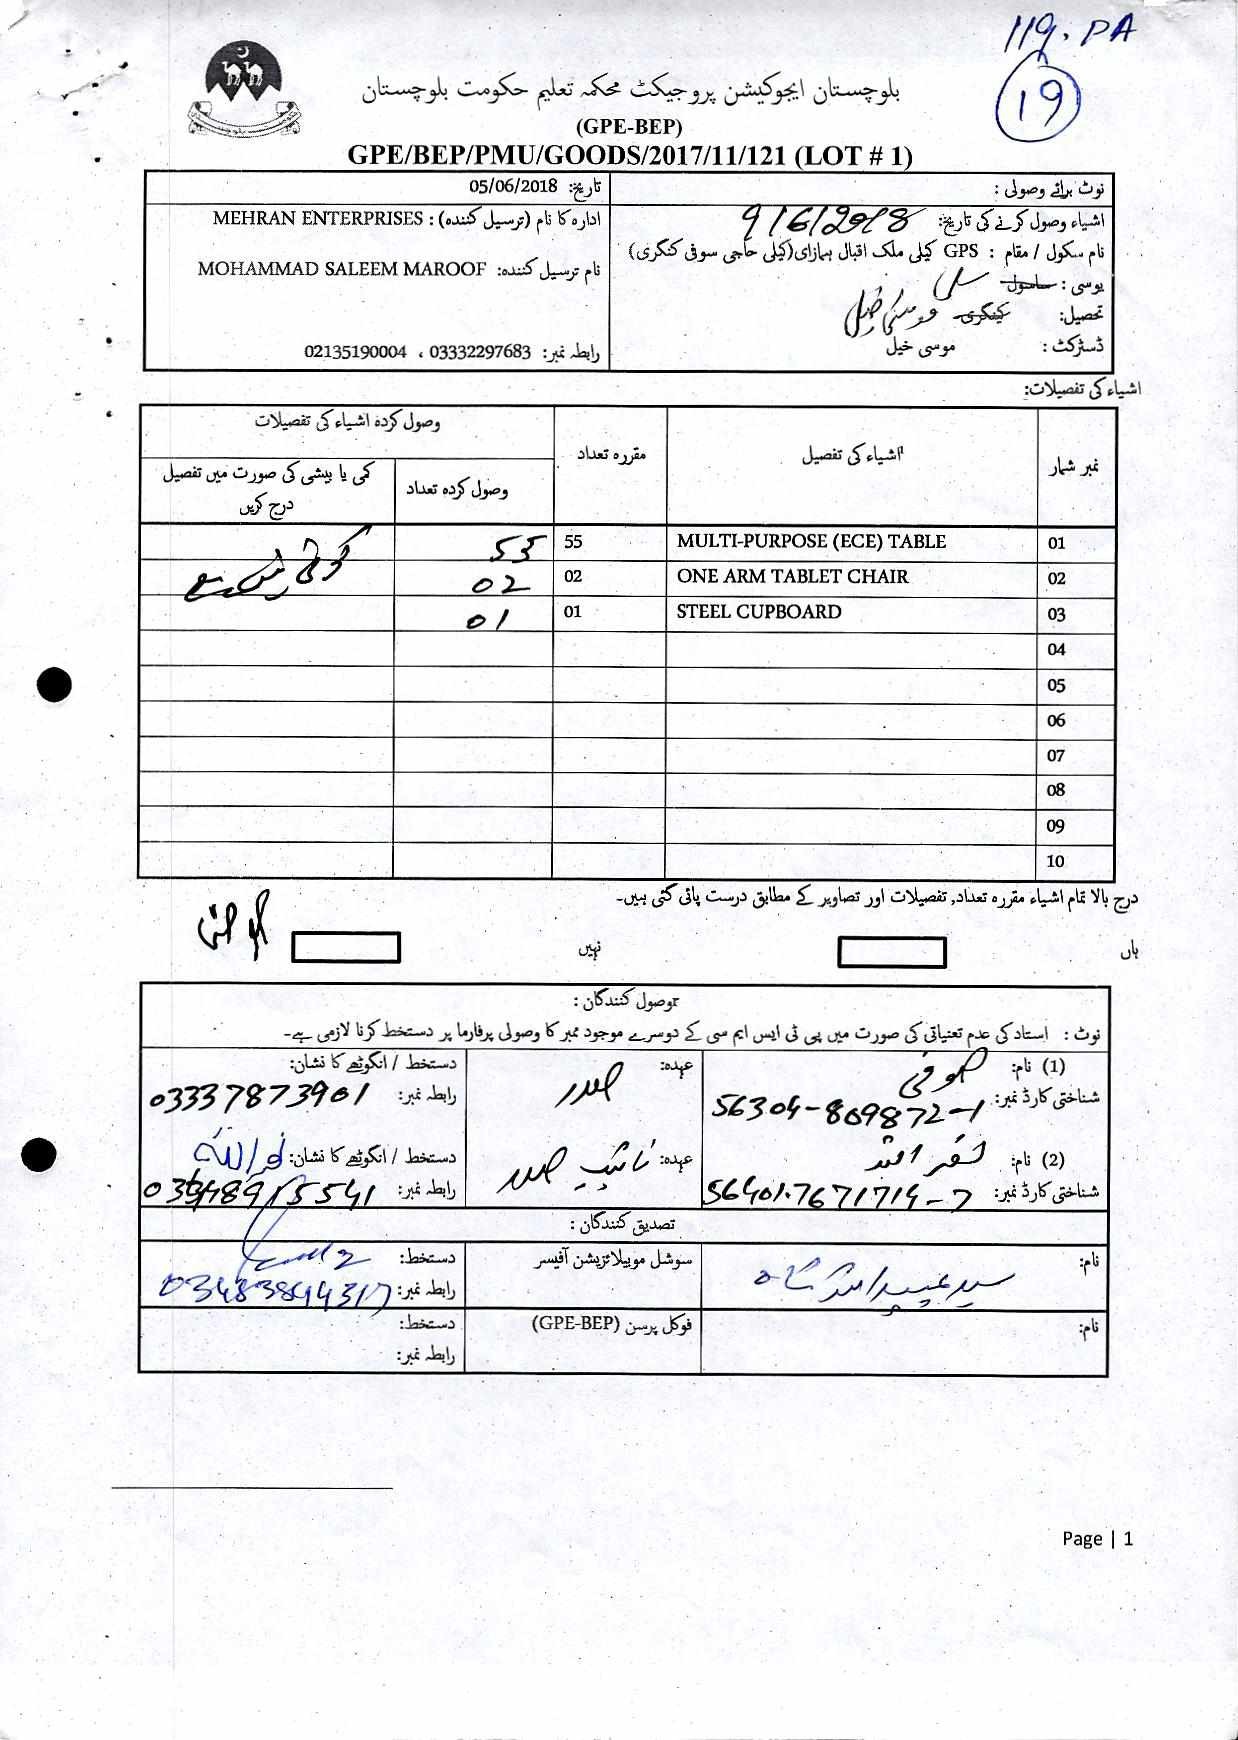 119. PA
19
بلوچستان ایجوکیشن پروجیکٹ محکمہ تعلیم حکومت بلوچستان
(GPE-BEP)
GPE/BEP/PMU/GOODS/2017/11/121 (LOT # 1)
نوٹ برائے وصولی :
اشیاء وصول کرنے کی تاریخ: 9/6/2018
نام سکول / مقام : GPS کیلی ملک اقبال ہمازای(کیلی حاجی سوفی کنگری)
یوسی :
تحصیل: کینگری موسیٰ خیل
ڈسٹرکٹ : موسی خیل
تاریخ: 05/06/2018
ادارہ کا نام (ترسیل کنندہ) : MEHRAN ENTERPRISES
نام ترسیل کنندہ: MOHAMMAD SALEEM MAROOF
رابطہ نمبر: 03332297683 ، 02135190004
اشیاء کی تفصیلات:
نمبر شمار
اشیاء کی تفصیل
مقررہ تعداد
وصول کردہ اشیاء کی تفصیلات
وصول کردہ تعداد
کمی یا بیشی کی صورت میں تفصیل
درج کریں
01 MULTI-PURPOSE (ECE) TABLE 55 55
02 ONE ARM TABLET CHAIR 02 02
03 STEEL CUPBOARD 01 01
کوئی نہیں ہے
04
05
06
07
08
09
10
درج بالا تمام اشیاء مقررہ تعداد, تفصیلات اور تصاویر کے مطابق درست پائی گئی ہیں۔
ہاں
نہیں
وصول کنندگان :
نوٹ : استاد کی عدم تعنیاتی کی صورت میں پی ٹی ایس ایم سی کے دوسرے موجود ممبر کا وصولی پرفارما پر دستخط کرنا لازمی ہے۔
(1) نام: صوفی
عہدہ: صدر
دستخط / انگوٹھے کا نشان:
شناختی کارڈ نمبر: 56304-809872-1
رابطہ نمبر: 03337873901
(2) نام:
عہدہ: نائیب صدر
دستخط / انگوٹھے کا نشان:
شناختی کارڈ نمبر: 56401.7671714-7
رابطہ نمبر:
تصدیق کنندگان :
نام:
سوشل موبیلائزیشن آفیسر
دستخط:
رابطہ نمبر: 03483894317
نام:
فوکل پرسن (GPE-BEP)
دستخط:
رابطہ نمبر:
Page | 1